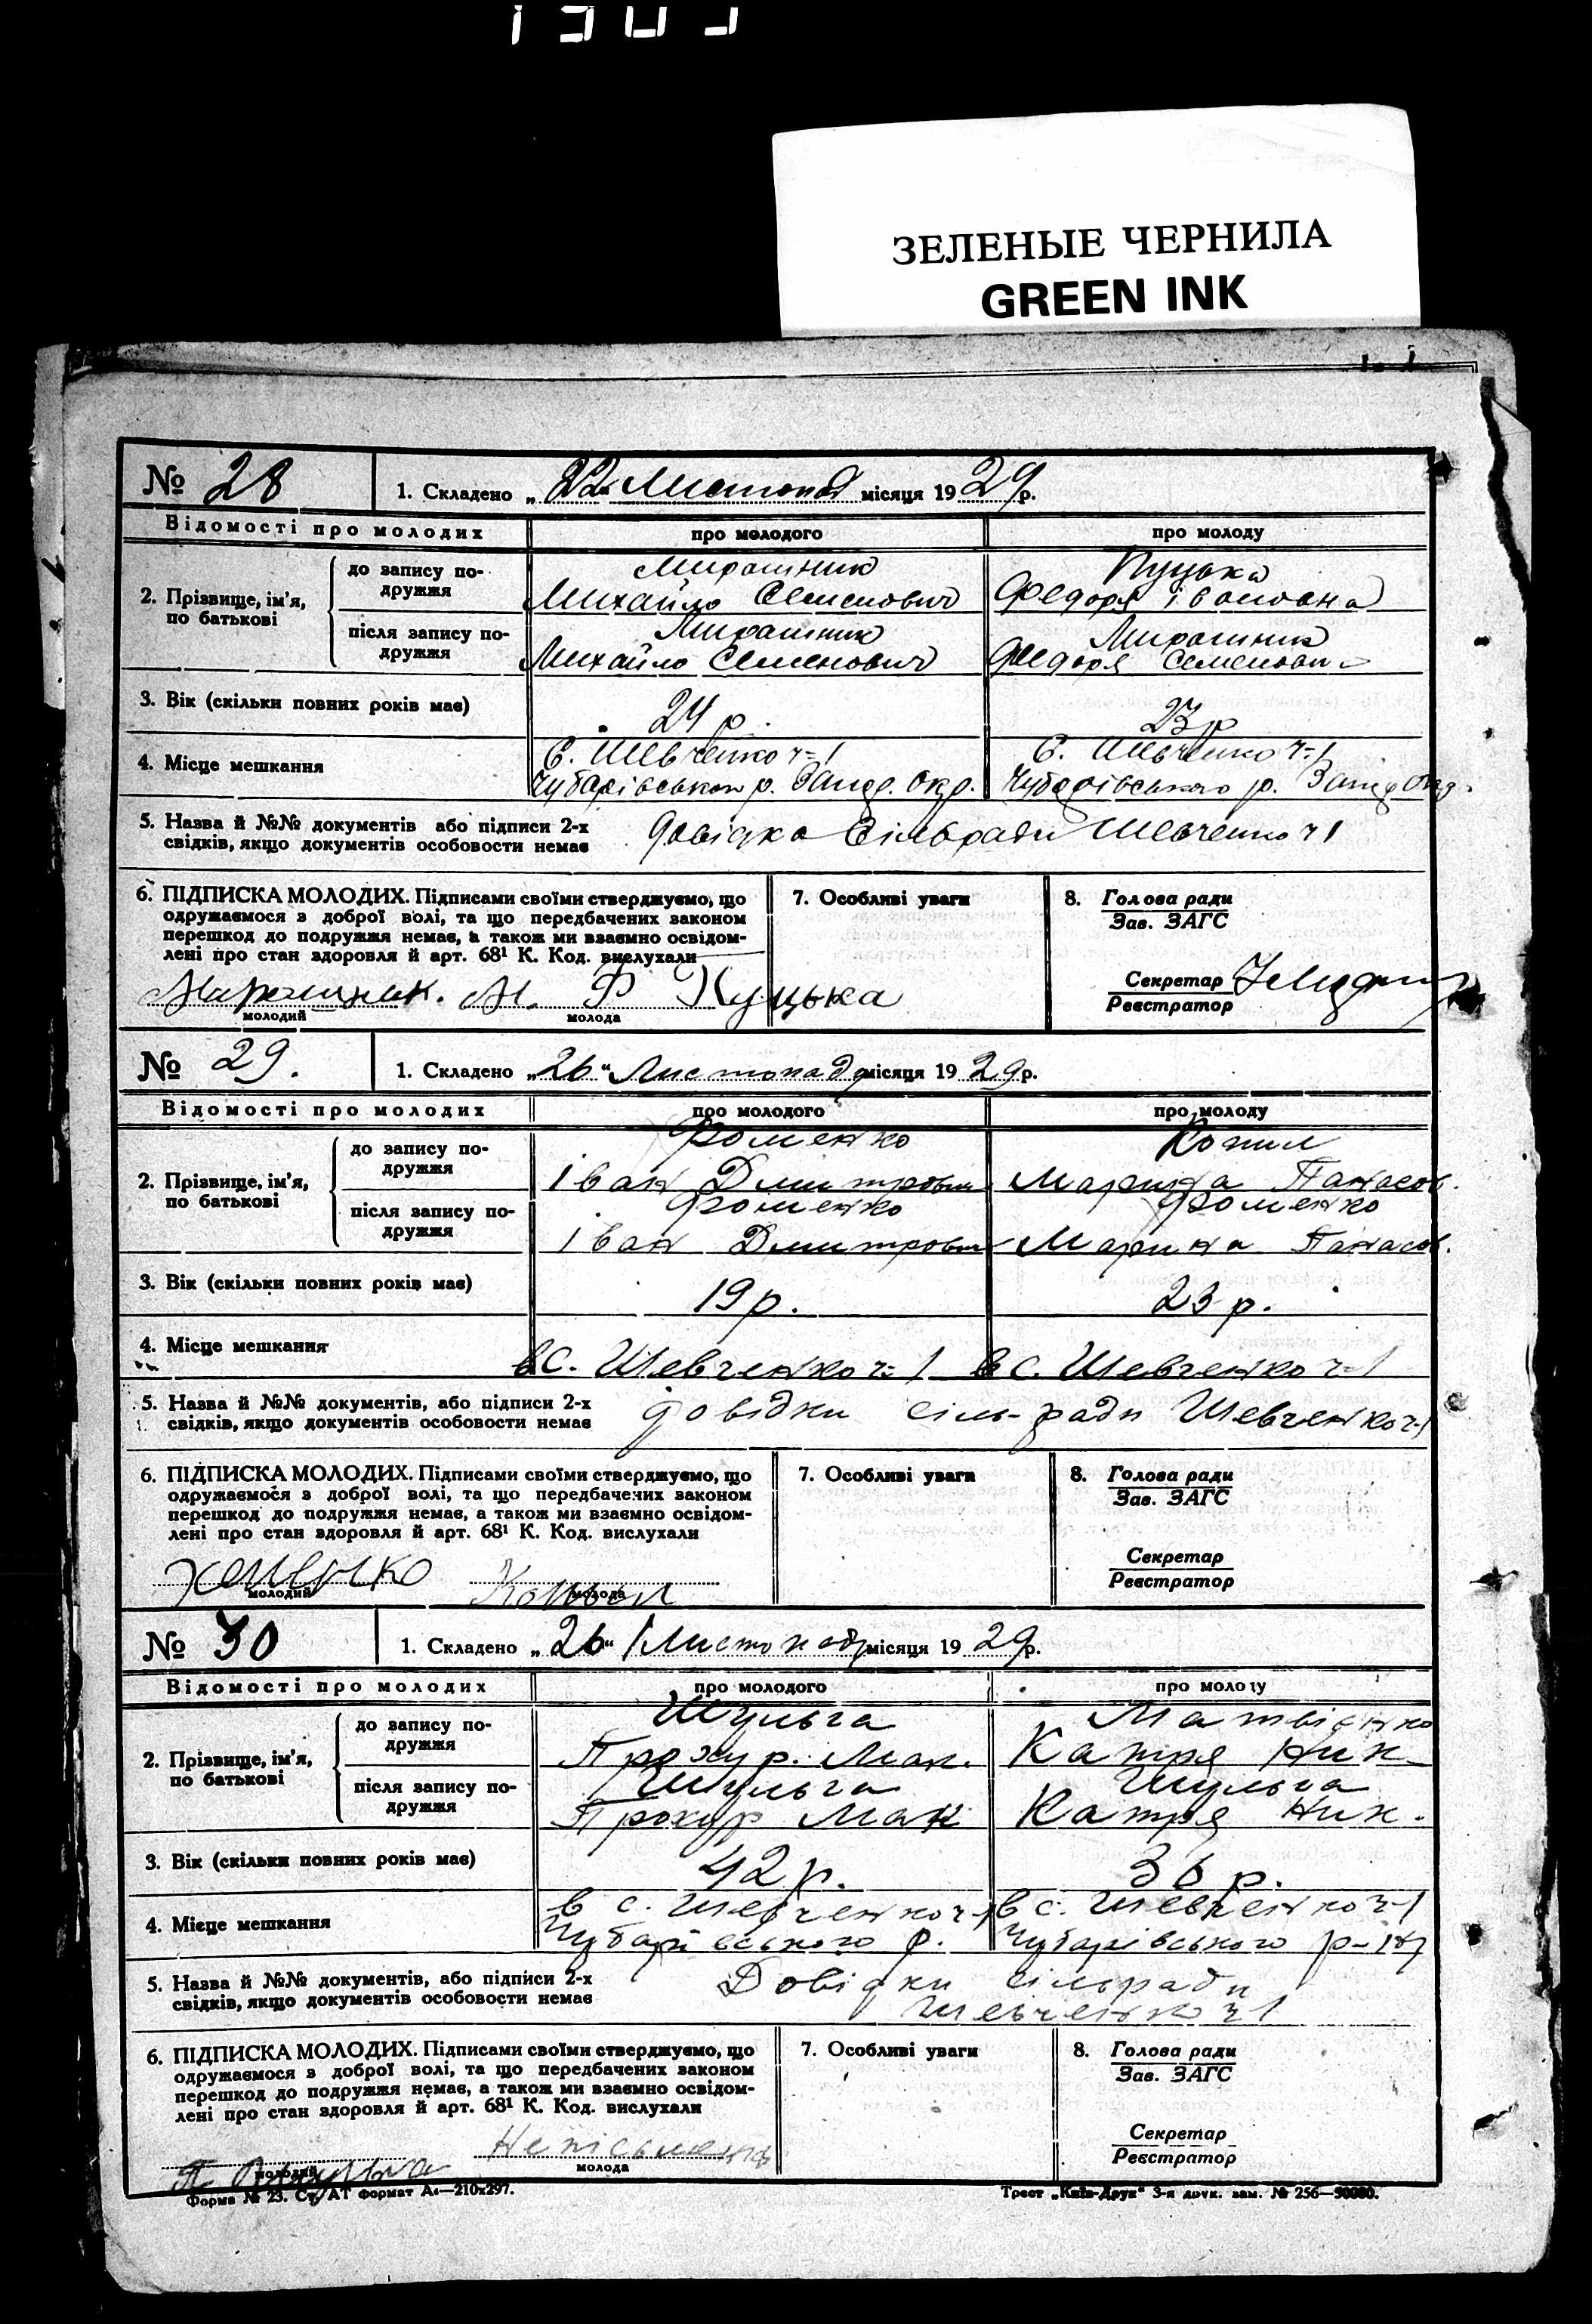 ЗЕЛЕНЫЕ ЧЕРНИЛА
GREEN INK
№ 28
1. Складено „22“ Листопад місяця 1929 р.
Відомості про молодих
про молодого
про молоду
2. Прізвище, ім'я, по батькові
до запису по-
дружжя
Мирошник
Михайло Семенович
Куцька
Федоря Івановна
після запису по-
дружжя
Мирошник
Михайло Семенович
Мирошник
Федоря Семенович
3. Вік (скільки повних років має)
24 р.
23 р
4. Місце мешкання
С. Шевченко ч-1
Чубарівського р. Запор. Окр.
С. Шевченко ч-1
Чубарівського р. Запор Окр.
5. Назва й №№ документів або підписи 2-х
свідків, якщо документів особовости немає
довідка Сільради Шевченко ч 1
6. ПІДПИСКА МОЛОДИХ. Підписами своїми стверджуємо, що
одружаємося з доброї волі, та що передбачених законом
перешкод до подружжя немає, а також ми взаємно освідом-
лені про стан здоровля й арт. 68¹ К. Код. вислухали
Мирошник. М.
молодий
Ф Куцька
молода
7. Особливі уваги
8. Голова ради
Зав. ЗАГС
Секретар
Реєстратор
№ 29.
1. Складено „26“ Листопаду місяця 1929 р.
Відомості про молодих
про молодого
про молоду
2. Прізвище, ім'я,
по батькові
до запису по-
дружжя
Фоменко
Іван Дмитрович
Копил
Марина Панасов.
після запису по-
дружжя
Фоменко
Іван Дмитрович
Фоменко
Марина Панасов.
3. Вік (скільки повних років має)
19 р.
23 р.
4. Місце мешкання
в с. Шевченко ч-1
в с. Шевченко ч-1
5. Назва й №№ документів, або підписи 2-х
свідків, якщо документів особовости немає
довідки сіль-ради Шевченко ч-1
6. ПІДПИСКА МОЛОДИХ. Підписами своїми стверджуємо, що
одружаємося з доброї волі, та що передбачених законом
перешкод до подружжя немає, а також ми взаємно освідом-
лені про стан здоровля й арт. 68¹ К. Код. вислухали
молодий
молода
7. Особливі уваги
8. Голова ради
Зав. ЗАГС
Секретар
Реєстратор
№ 30
1. Складено „26“ Листопаду місяця 1929 р.
Відомості про молодих
про молодого
про молоду
2. Прізвище, ім'я,
по батькові
до запису по-
дружжя
Шульга
Прохур. Мак.
Матвієнко
Катря Ник.
після запису по-
дружжя
Шульга
Прохур Мак
Шульга
Катря Ник.
3. Вік (скільки повних років має)
42 р.
36 р.
4. Місце мешкання
в с. Шевченко ч-1
Чубарівського р.
в с. Шевченко ч-1
Чубарівського р-ну
5. Назва й №№ документів, або підписи 2-х
свідків, якщо документів особовости немає
Довідки сільради
Шевченко ч 1
6. ПІДПИСКА МОЛОДИХ. Підписами своїми стверджуємо, що
одружаємося з доброї волі, та що передбачених законом
перешкод до подружжя немає, а також ми взаємно освідом-
лені про стан здоровля й арт. 68¹ К. Код. вислухали
П. Шульга
молодий
Неписьменна
молода
7. Особливі уваги
8. Голова ради
Зав. ЗАГС
Секретар
Реєстратор
Форма № 23. Ст. АТ формат А₄—210х297.
Трест „Київ-Друк“ 3-я друк. зам. № 256—50000.